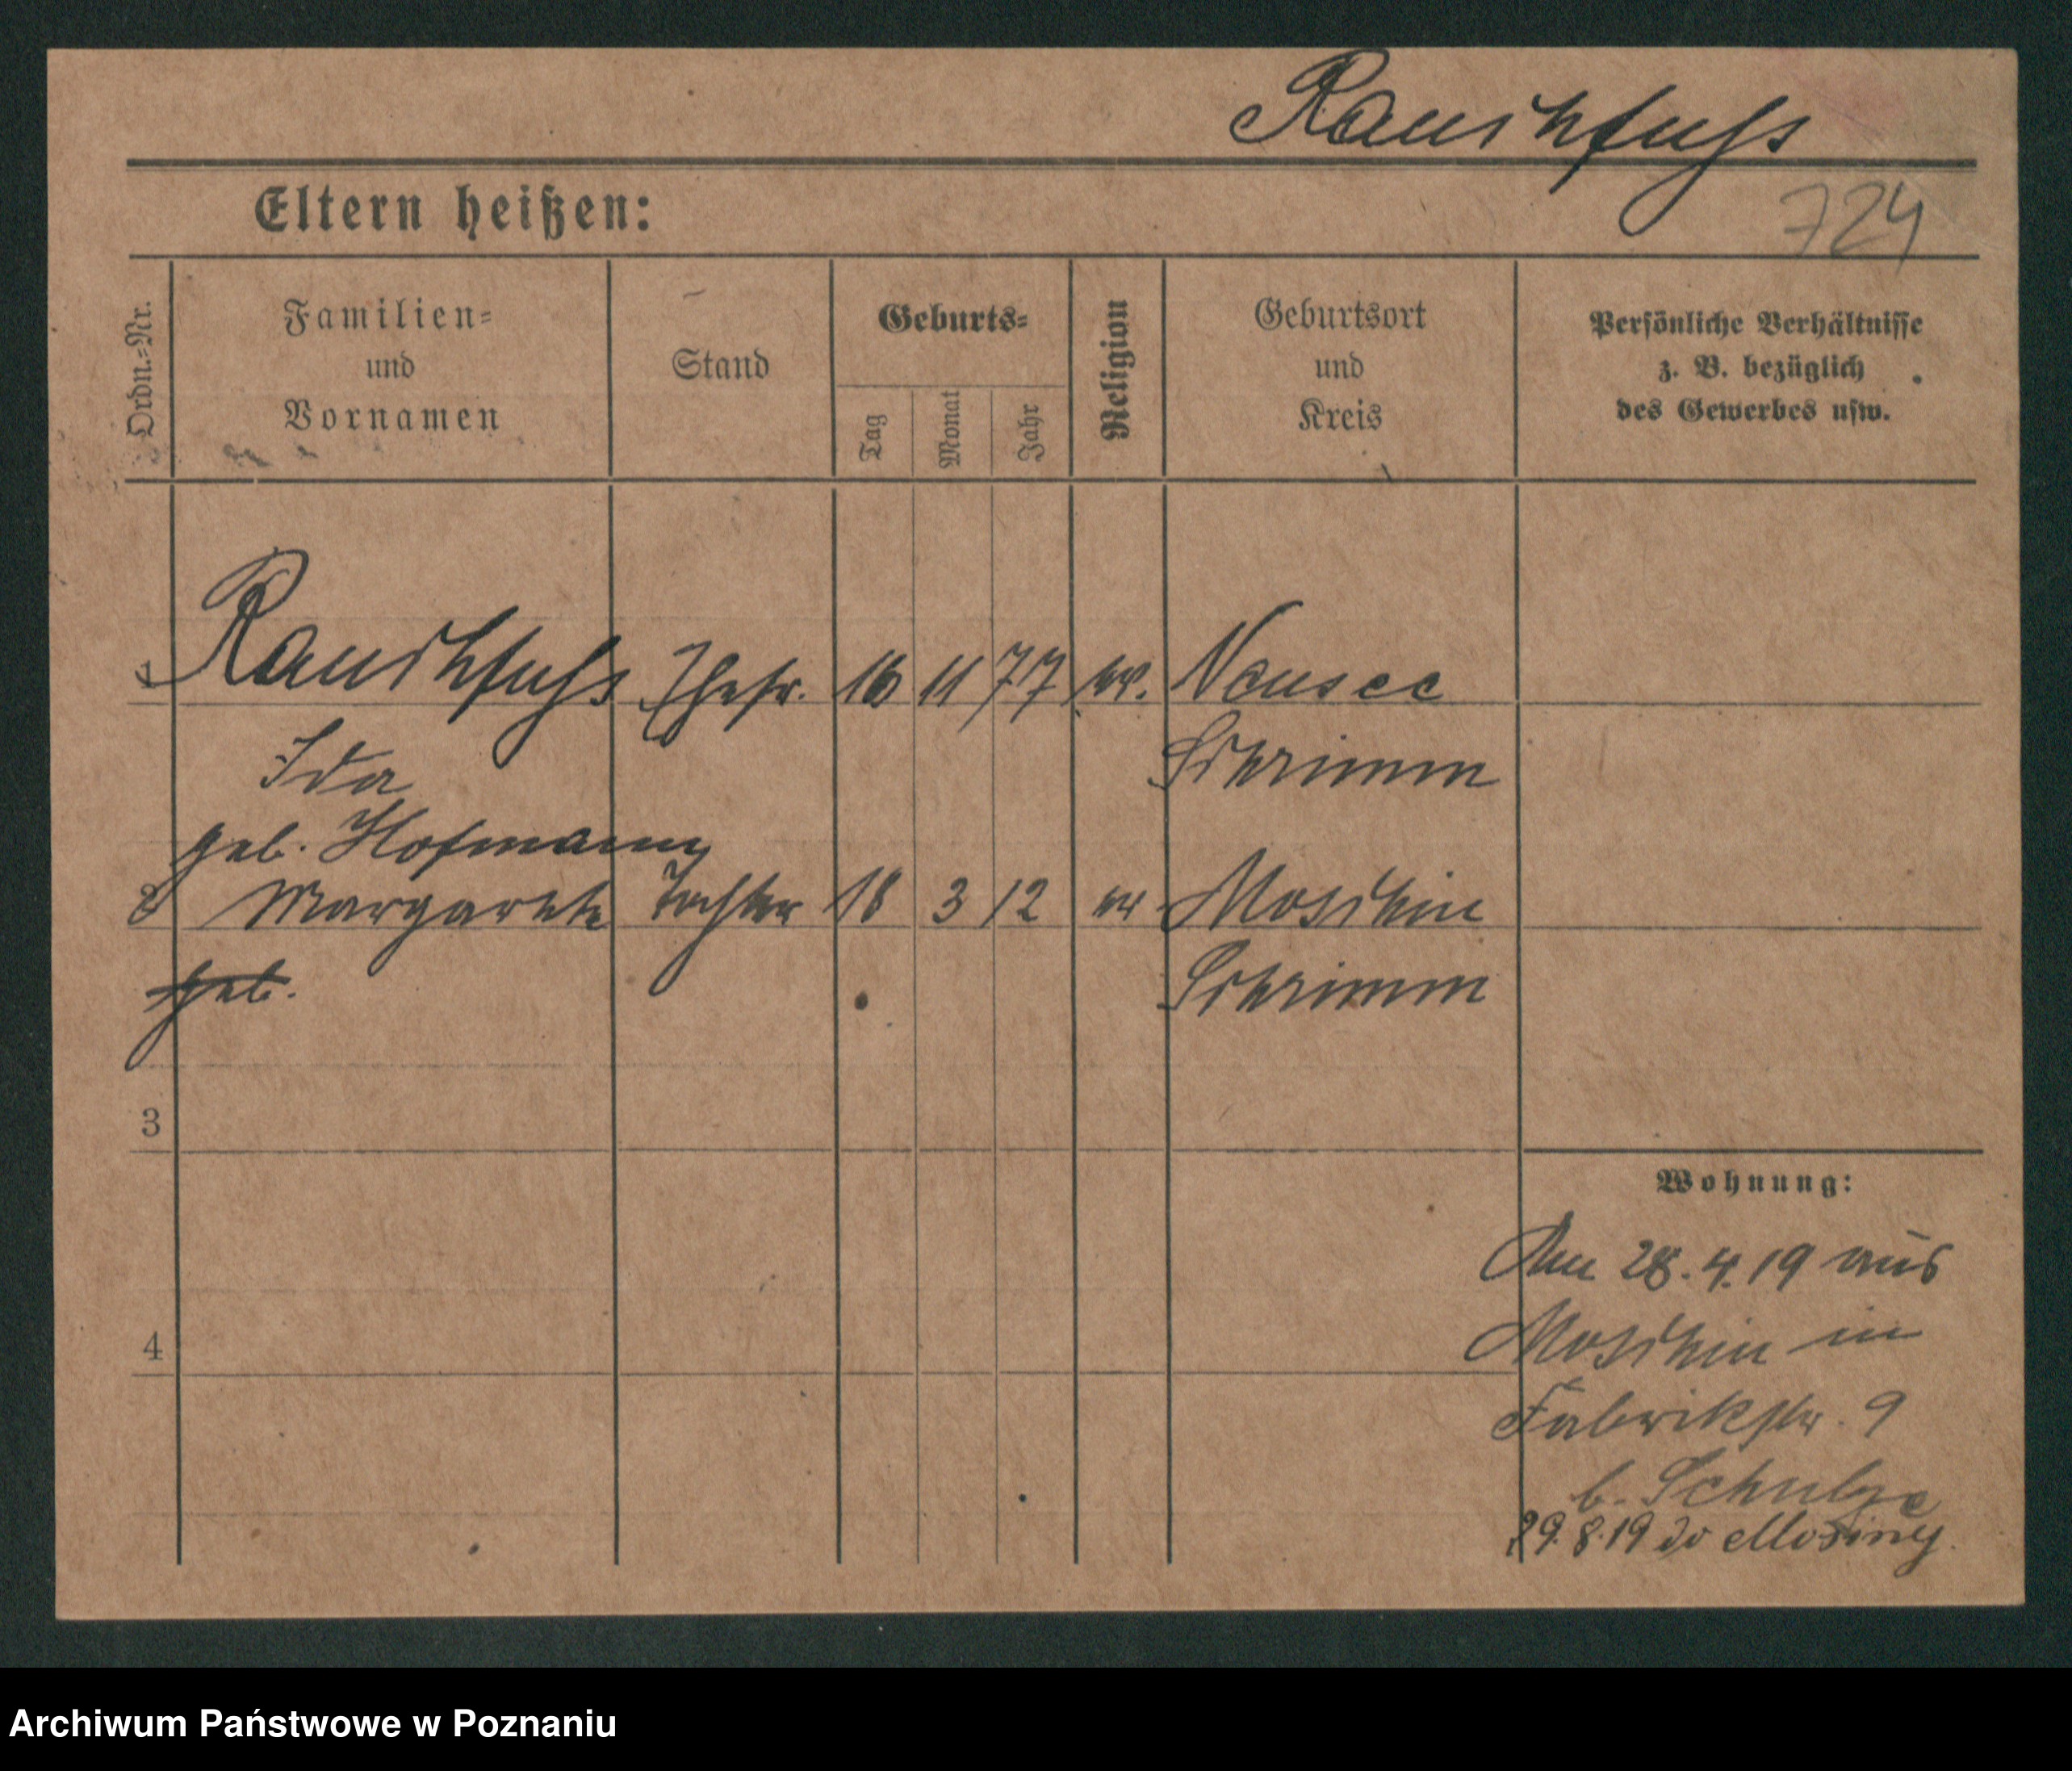 Rauschfuss
Eltern heißen:
724
Ordn.-Nr.
Familien-
und
Vornamen
Stand
Geburts-
Tag
Monat
Jahr
Religion
Geburtsort
und
Kreis
Persönliche Verhältnisse
z. B. bezüglich
des Gewerbes usw.
1 Rauschfuss Ehefr. 16 11 77 ev. Neusee
Ida Schrimm
geb. Hofmann
2 Margarete Tochter 18 3 12 ev Moschin
geb. Schrimm
3
4
Wohnung:
Am 28.4.19 aus
Moschin in
Fabrikstr. 9
b. Schulze
29.8.19 do Mosiny.
Archiwum Państwowe w Poznaniu